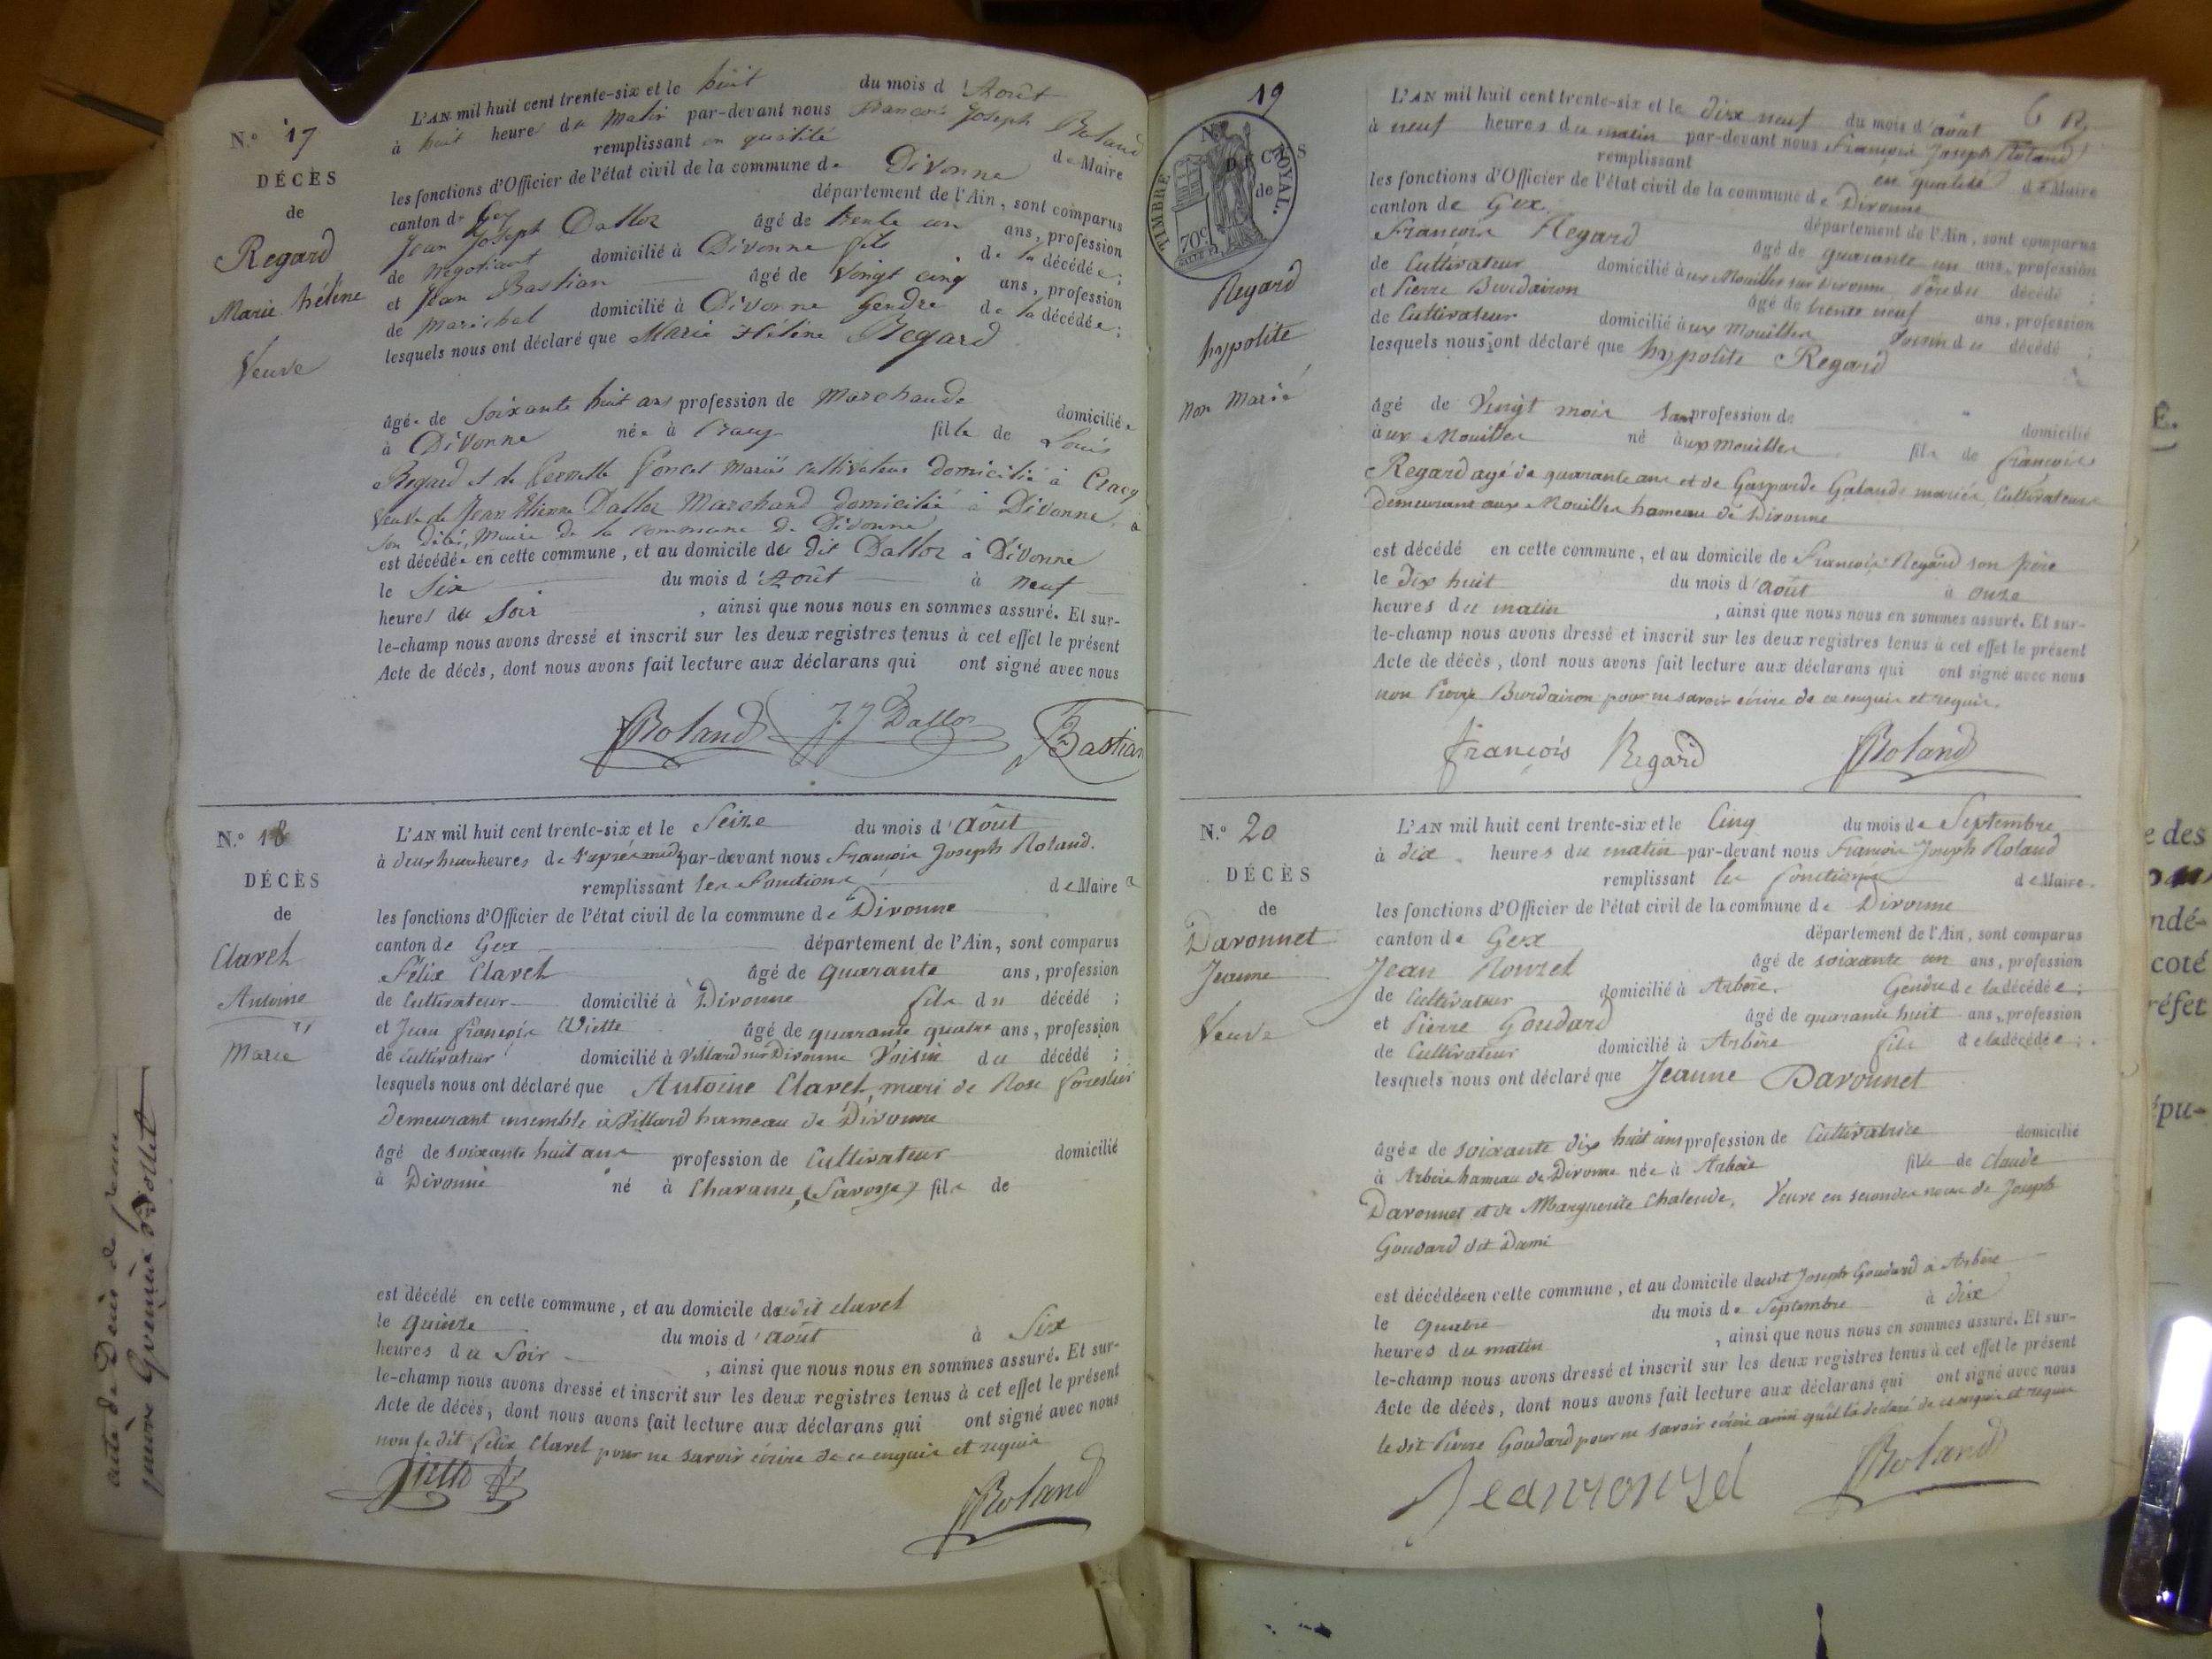 N.º 17
DÉCÈS
de
Regard
Marie hélène
Veuve
L'AN mil huit cent trente-six et le huit du mois d'Août
à huit heures du matin par-devant nous François Joseph Roland
remplissant en qualité de Maire
les fonctions d'Officier de l'état civil de la commune de Divonne
canton de Gex département de l'Ain, sont comparus
Jean Joseph Dalloz âgé de trente un ans, profession
de Négotiant domicilié à Divonne fils de la décédée;
et Jean Bastian âgé de Vingt cinq ans, profession
de Maréchal domicilié à Divonne Gendre de la décédée;
lesquels nous ont déclaré que Marie Hélène Regard
âgée de Soixante huit ans profession de Marchande domiciliée
à Divonne née à Crassy fille de Louis
Regard et de Poncet mariés cultivateurs domicilié à Crassy
Veuve de Jean Etienne Dalloz Marchand domicilié à Divonne, à
son décès, Maire de la commune de Divonne
est décédée en cette commune, et au domicile du dit Dalloz à Divonne
le Six du mois d'Août à neuf
heures du Soir, ainsi que nous nous en sommes assuré. Et sur-
le-champ nous avons dressé et inscrit sur les deux registres tenus à cet effet le présent
Acte de décès, dont nous avons fait lecture aux déclarans qui ont signé avec nous
Roland J. J Dalloz Bastian
N.º 18
DÉCÈS
de
Claret
Antoine
Marié
L'AN mil huit cent trente-six et le Seize du mois d'Août
à deux heures de l'après midi par-devant nous François Joseph Roland.
remplissant les fonctions de Maire
les fonctions d'Officier de l'état civil de la commune de Divonne
canton de Gex département de l'Ain, sont comparus
Félix Claret âgé de quarante ans, profession
de Cultivateur domicilié à Divonne fils du décédé;
et Jean françois Viette âgé de quarante quatre ans, profession
de Cultivateur domicilié à Villard sur Divonne Voisin du décédé;
lesquels nous ont déclaré que Antoine Claret, mari de Rose forestier
Demeurant ensemble à Villard hameau de Divonne
âgé de soixante huit ans profession de Cultivateur domicilié
à Divonne né à (Savoye) fils de
est décédé en cette commune, et au domicile dudit Claret
le quinze du mois d'août à Six
heures du Soir, ainsi que nous nous en sommes assuré. Et sur-
le-champ nous avons dressé et inscrit sur les deux registres tenus à cet effet le présent
Acte de décès, dont nous avons fait lecture aux déclarans qui ont signé avec nous
non le dit félix Claret pour ne savoir écrire de ce enquis et requis
Viette Roland
19
N.º
DÉCÈS
de
TIMBRE ROYAL.
70c
Regard
hypolite
Non Marié
6
L'AN mil huit cent trente-six et le dix neuf du mois d'août
à neuf heures du matin par-devant nous François Joseph Roland
remplissant en qualité de Maire
les fonctions d'Officier de l'état civil de la commune de Divonne
canton de Gex département de l'Ain, sont comparus
François Regard âgé de quarante un ans, profession
de Cultivateur domicilié aux Mouilles sur Divonne Père du décédé;
et Pierre Burdairon âgé de trente neuf ans, profession
de Cultivateur domicilié aux Mouilles Voisin du décédé;
lesquels nous ont déclaré que hypolite Regard
âgé de Vingt mois San profession de domicilié
aux Mouilles né aux mouilles fils de françois
Regard agé de quarante ans et de Gasparde Galande mariés, Cultivateurs
demeurant aux Mouilles hameau de Divonne
est décédé en cette commune, et au domicile de François Regard son père
le dix huit du mois d'août à onze
heures du matin, ainsi que nous nous en sommes assuré. Et sur-
le-champ nous avons dressé et inscrit sur les deux registres tenus à cet effet le présent
Acte de décès, dont nous avons fait lecture aux déclarans qui ont signé avec nous
non Pierre Burdairon pour ne savoir écrire de ce enquis et requis.
françois Regard Roland
N.º 20
DÉCÈS
de
Davonnet
Jeanne
Veuve
L'AN mil huit cent trente-six et le Cinq du mois de Septembre
à dix heures du matin par-devant nous François Joseph Roland
remplissant les fonctions de Maire.
les fonctions d'Officier de l'état civil de la commune de Divonne
canton de Gex département de l'Ain, sont comparus
Jean Rouzet âgé de soixante un ans, profession
de Cultivateur domicilié à Arbère. Gendre de la décédée;
et Pierre Goudard âgé de quarante huit ans, profession
de Cultivateur domicilié à Arbère fils de la décédée;
lesquels nous ont déclaré que Jeanne Davonnet
âgée de soixante dix huit ans profession de Cultivatrice domicilié
à Arbère hameau de Divonne née à Arbère fille de Claude
Davonnet et de Marguerite Chalende, Veuve en secondes noces de Joseph
Goudard dit Dami
est décédée en cette commune, et au domicile dudit Joseph Goudard à Arbère
le quatre du mois de Septembre à dix
heures du matin, ainsi que nous nous en sommes assuré. Et sur-
le-champ nous avons dressé et inscrit sur les deux registres tenus à cet effet le présent
Acte de décès, dont nous avons fait lecture aux déclarans qui ont signé avec nous
le dit Pierre Goudard pour ne savoir écrire ainsi qu'il l'a déclaré de ce enquis et requis
Jean rouzet Roland
acte de Décès de jean
E.
e des
ndé-
coté
réfet
épu-